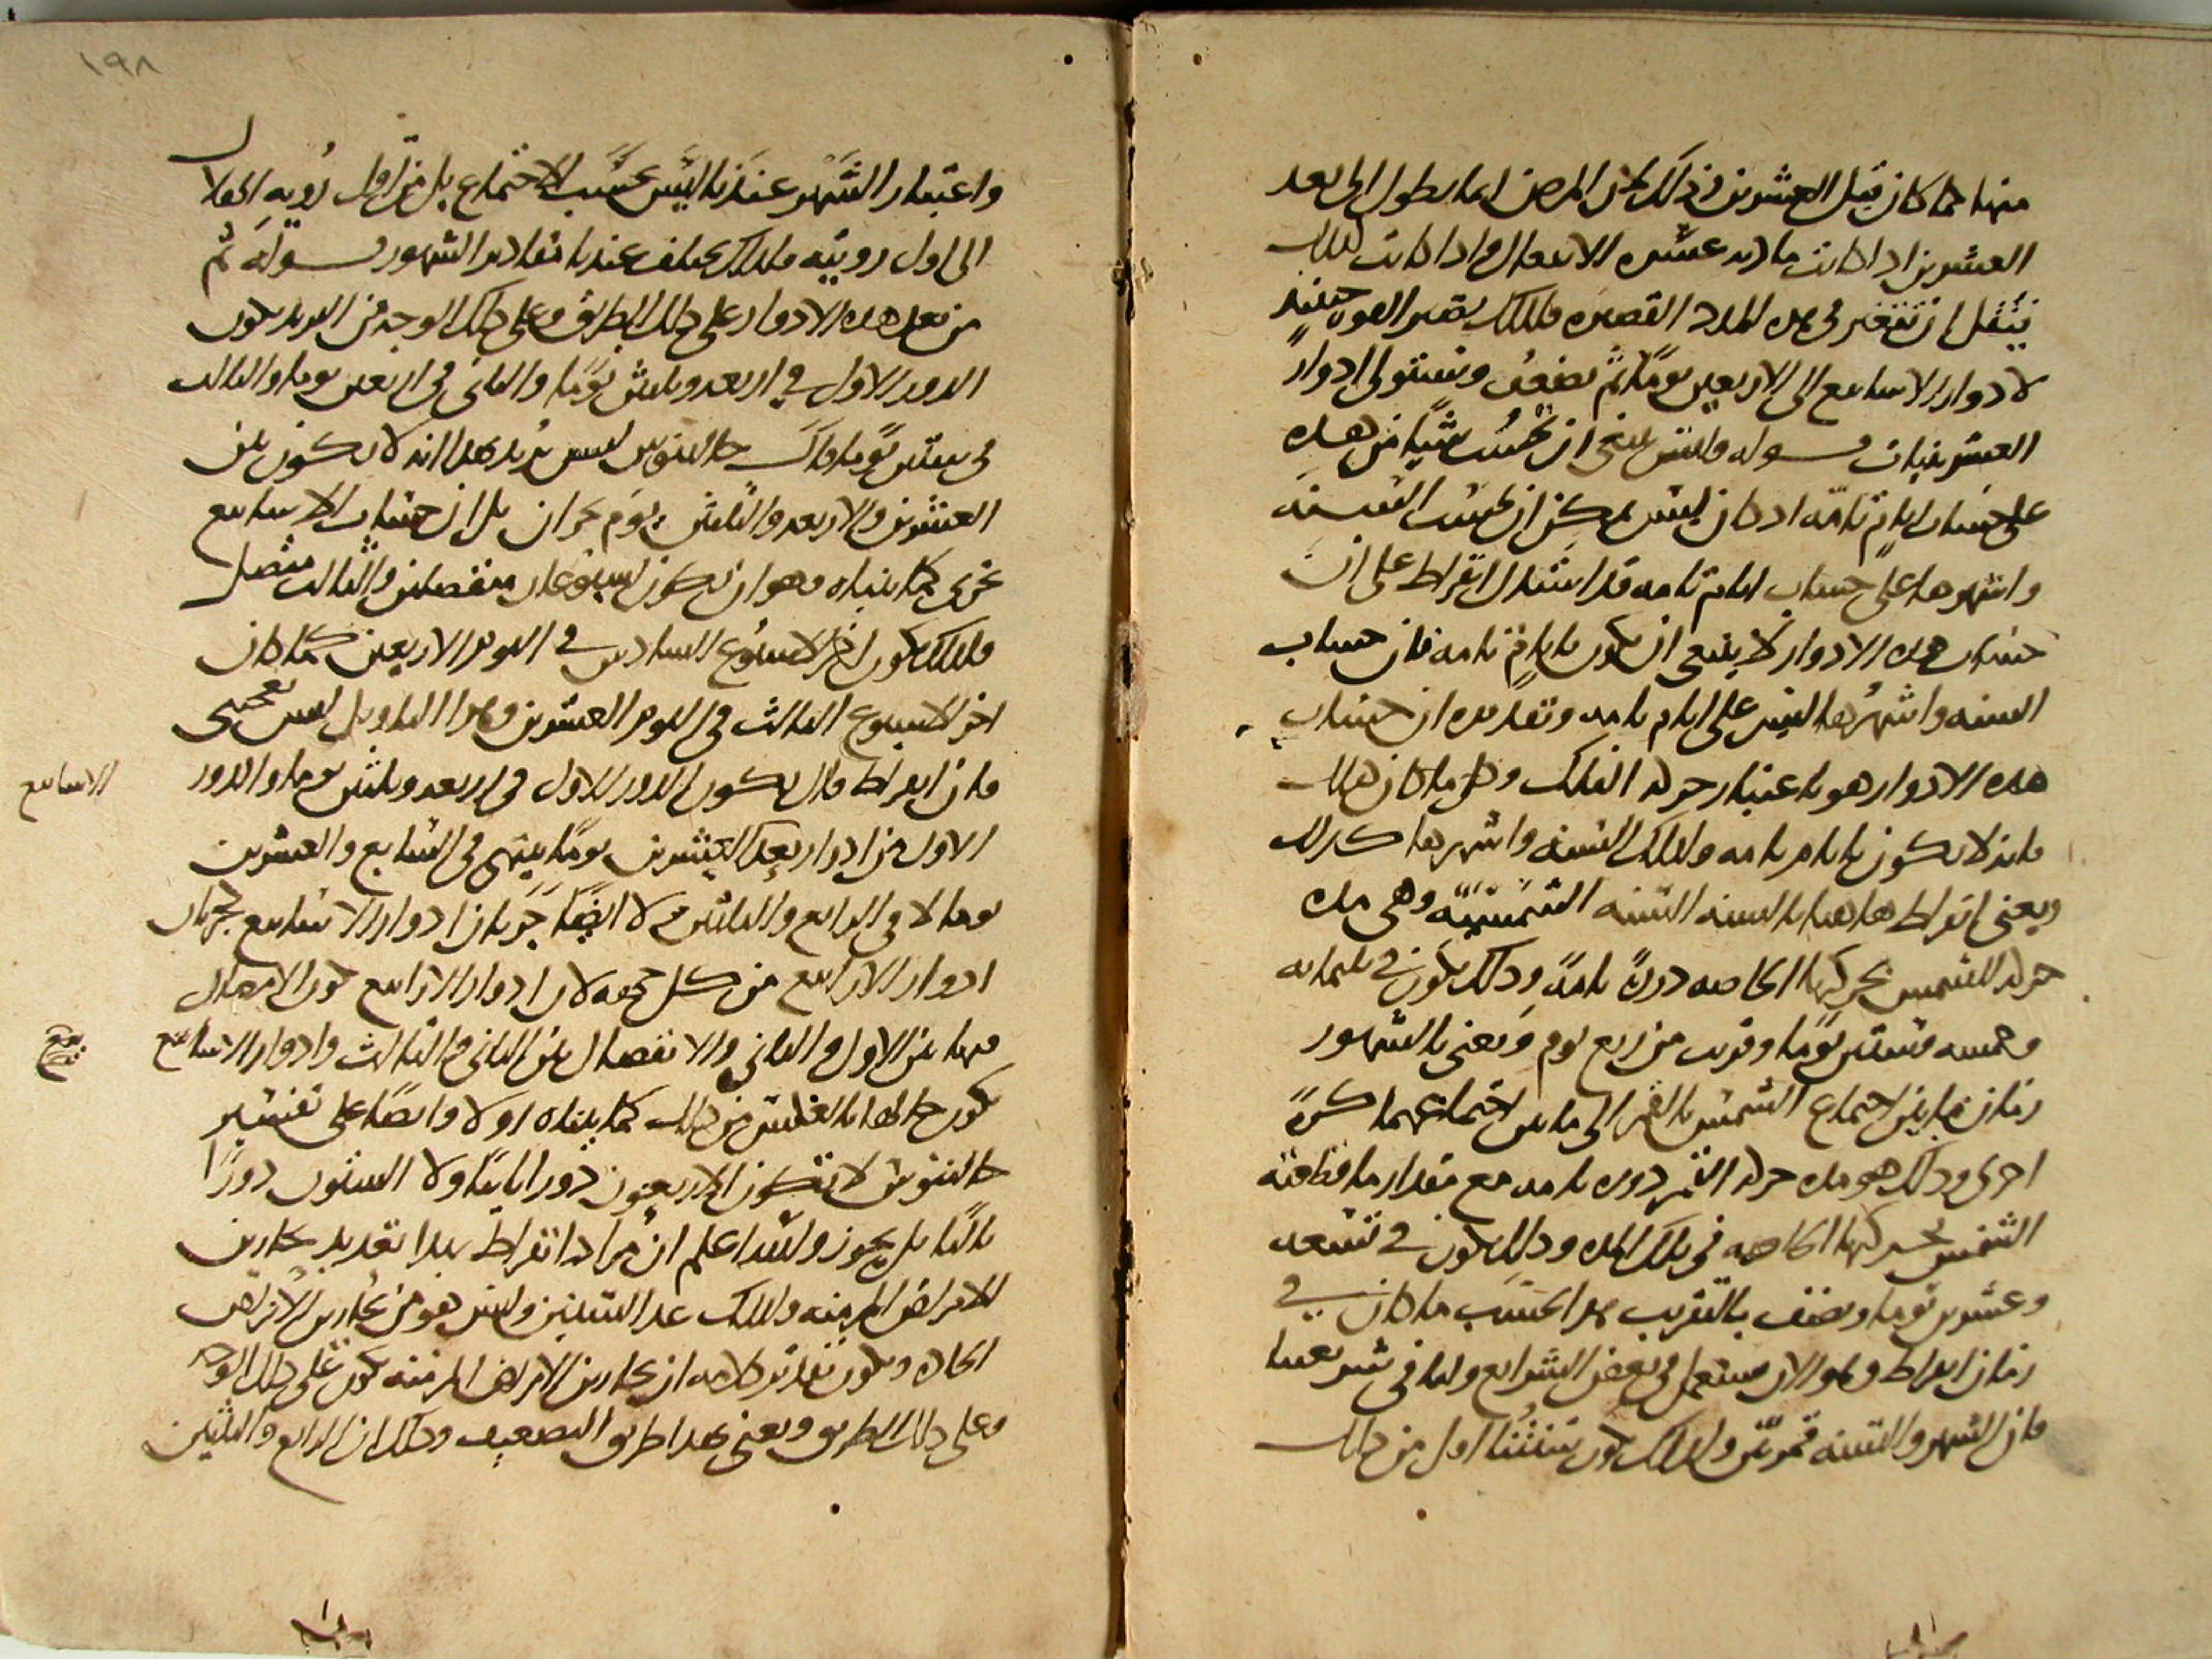 منها مما كان قبل العشرين وذلك لان المرض انما يطول الى بعد
العشرين اذا كانت مادته عسره الانفعال واذا كانت كذلك
يثقل ان تتغير في هذه المدد القصيره فلذلك يقصر القوى حينئذٍ
لادوار الاسابيع الى الاربعين يومًا ثم تضعف وتستولى ادوار
العشرينيات قوله وليس ينبغي ان تحسب شيًا من هذه
على حساب ايامٍ تامّه اذ كان ليس يمكن ان تحسب السنه
واشهرها على حساب ايام تامه قد استدل ابقراط على ان
حساب هذه الادوار لا ينبغي ان يكون بايامٍ تامه فان حساب
السنه واشهُرها ليس على ايام تامه وتقديره ان حساب
هذه الادوار هو باعتبار حركه الفلك وكل ما كان كذلك
فانه لا يكون بايام تامه ولذلك السنه واشهرها كذلك
ويعني ابقراط هاهنا بالسنه السنه الشمسيّه وهي مده
حركه الشمس بحركتها الخاصه دورةً تامةً وذلك يكون في ثلثمايه
وخمسه وستين يومًا وقريب من ربع يوم ويعني بالشهور
زمان ما بين اجتماع الشمس بالقمر الى ما بين اجتماعهما كرةً
اخرى وذلك هو مده حركه القمر دوره تامه مع مقدار ما قطعته
الشمس بحركتها الخاصه في تلك المده وذلك يكون في تسعه
وعشرين يوما ونصف بالتقريب هذا بحسب ما كان في
زمان ابقراط وهو الان مستعمل في بعض الشرايع واما في شريعتنا
فان الشهر والسنه قمريّين ولذلك يكون سنتنا اقل من ذلك
واعتبار الشهر عندنا ليس بحسب الاجتماع بل من اول رُويه الهلال
الى اول رويته ولذلك يختلف عندنا مقادير الشهور قوله ثم
من بعد هذه الادوار على ذلك الطريق وعلى ذلك الوجه من التزيد يكون
الدور الاول في اربعه وثلثين يومًا والثاني في اربعين يوما والثالث
في ستين يومًا قال جالينوس ليس يريد بهذا انه لا يكون بين
العشرين والاربعه والثلثين يوم بحران بل ان حساب الاسابيع
تجري كما بيناه وهو ان يكون اسبوعان منفصلين والثالث متصل
فلذلك يكون اخر الاسبوع السادس في اليوم الاربعين كما كان
اخر الاسبوع الثالث في اليوم العشرين وهذا التاويل ليس يعجبني
فان ابقراط قال يكون الدور الاول في اربعه وثلثين يوما والدور
الاول من ادوار بعد العشرين يومًا ينتهي في السابع والعشرين
يوما لا في الرابع والثلثين ولا ايضًا جريان ادوار الاسابيع كجريان
ادوار الارابيع من كل جهه لان ادوار الارابيع يكون الاتصال
فيها بين الاول والثاني والانفصال بين الثاني والثالث وادوار الاسابيع
يكون حالها بالعكس من ذلك كما بيناه اولا وايضًا على تفسير
جالينوس لا تكون الاربعون دورا ثانيًا ولا الستون دورًا
ثالثا بل يجوز والله اعلم ان مُراد ابقراط بهذا تعديد بحارين
الامراض المزمنه ولذلك عد الستين وليس هو من بحارين الامراض
الحاده ويكون تقدير كلامه ان بحارين الامراض المزمنه يكون على ذلك الوجه
وعلى ذلك الطريق ويعني بهذا طريق التضعيف وذلك ان الرابع والثلثين
الاسابيع
١٩٨